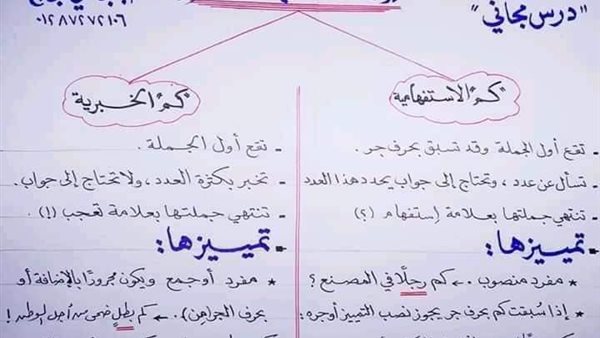 "درس مجاني"
٠١٢٨٧٢٧٢١٠٦
"كم" الاستفهامية
- تقع أول الجملة وقد تسبق بحرف جر.
- تسأل عن عدد، وتحتاج إلى جواب يحدد هذا العدد
- تنتهي جملتها بعلامة إستفهام (؟)
- تمييزها:
* مفرد منصوب. ← كم رجلًا في المصنع؟
* إذا سُبقت كم بحرف جر يجوز نصب التمييز أوجره:
"كم" الخبرية
- تقع أول الجملة.
- تخبر بكثرة العدد، ولا تحتاج إلى جواب.
- تنتهي جملتها بعلامة تعجب (!)
- تمييزها:
* مفرد أوجمع ويكون مجرورًا بالإضافة أو
بحرف الجر (من). ← كم بطلٍ ضحى من أجل الوطن!